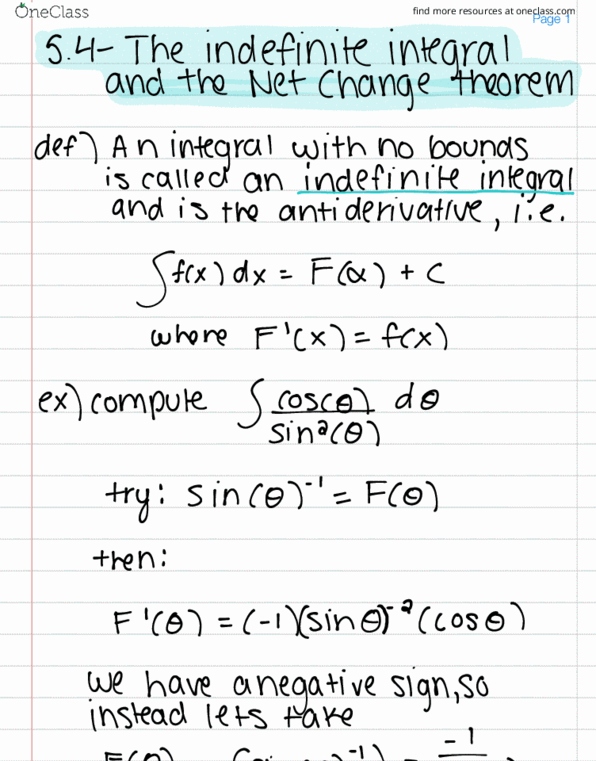 OneClass
find more resources at oneclass.com
Page 1
5.4- The indefinite integral
and the Net Change theorem
def) An integral with no bounds
is called an indefinite integral
and is the antiderivative, i.e.
∫f(x) dx = F(x) + C
where F'(x) = f(x)
ex) compute ∫ cos(θ)/sin²(θ) dθ
try: sin(θ)⁻¹ = F(θ)
then:
F'(θ) = (-1)(sinθ)⁻²(cosθ)
we have a negative sign, so
instead lets take